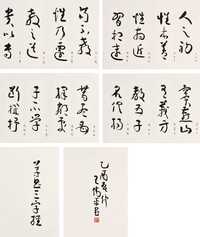 人之初
性本善
性相近
習相遠
苟不教
性乃遷
教之道
貴以專
昔孟母
擇鄰處
子不學
斷機杼
竇燕山
有義方
教五子
名俱揚
草書三字經
乙酉